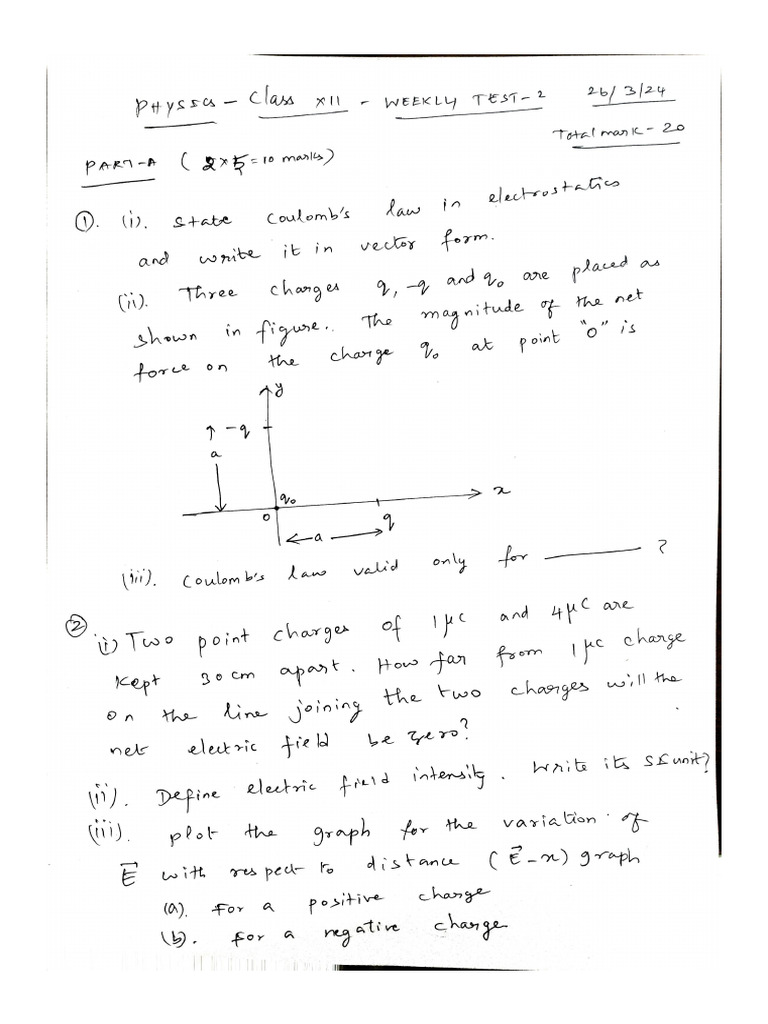 PHYSICS - Class XII - WEEKLY TEST-2 26/3/24
Total mark - 20
PART-A ( 2 x 5 = 10 marks)
①. (i). State Coulomb's law in electrostatics
and write it in vector form.
(ii). Three charges q, -q and q₀ are placed as
shown in figure. The magnitude of the net
force on the charge q₀ at point "O" is
y
-q
a
q₀
x
O
q
a
(iii). Coulomb's law valid only for ________ ?
② (i) Two point charges of 1 μC and 4 μC are
kept 30 cm apart. How far from 1 μC charge
on the line joining the two charges will the
net electric field be zero?
(ii). Define electric field intensity. Write its SI unit?
(iii). plot the graph for the variation of
E⃗ with respect to distance (E⃗-x) graph
(a). For a positive charge
(b). For a negative charge